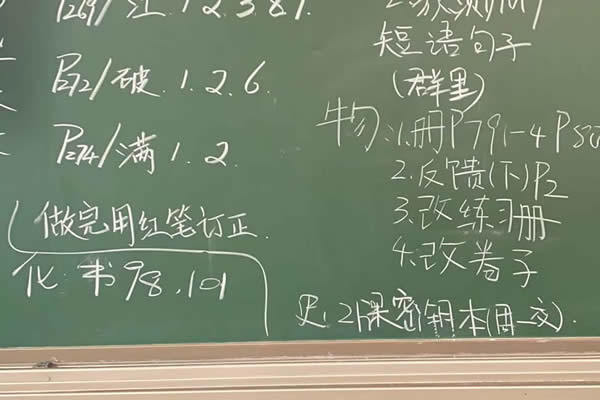 P269/江 1.2.3.8.1.
P272/破.1.2.6.
P274/满1.2.
做完用红笔订正.
化:书98.101
短语句子
(群里)
物:1.册P79 1-4 P80
2.反馈(下)P2
3.改练习册
4.改卷子
史:21课密钥本(周一交).